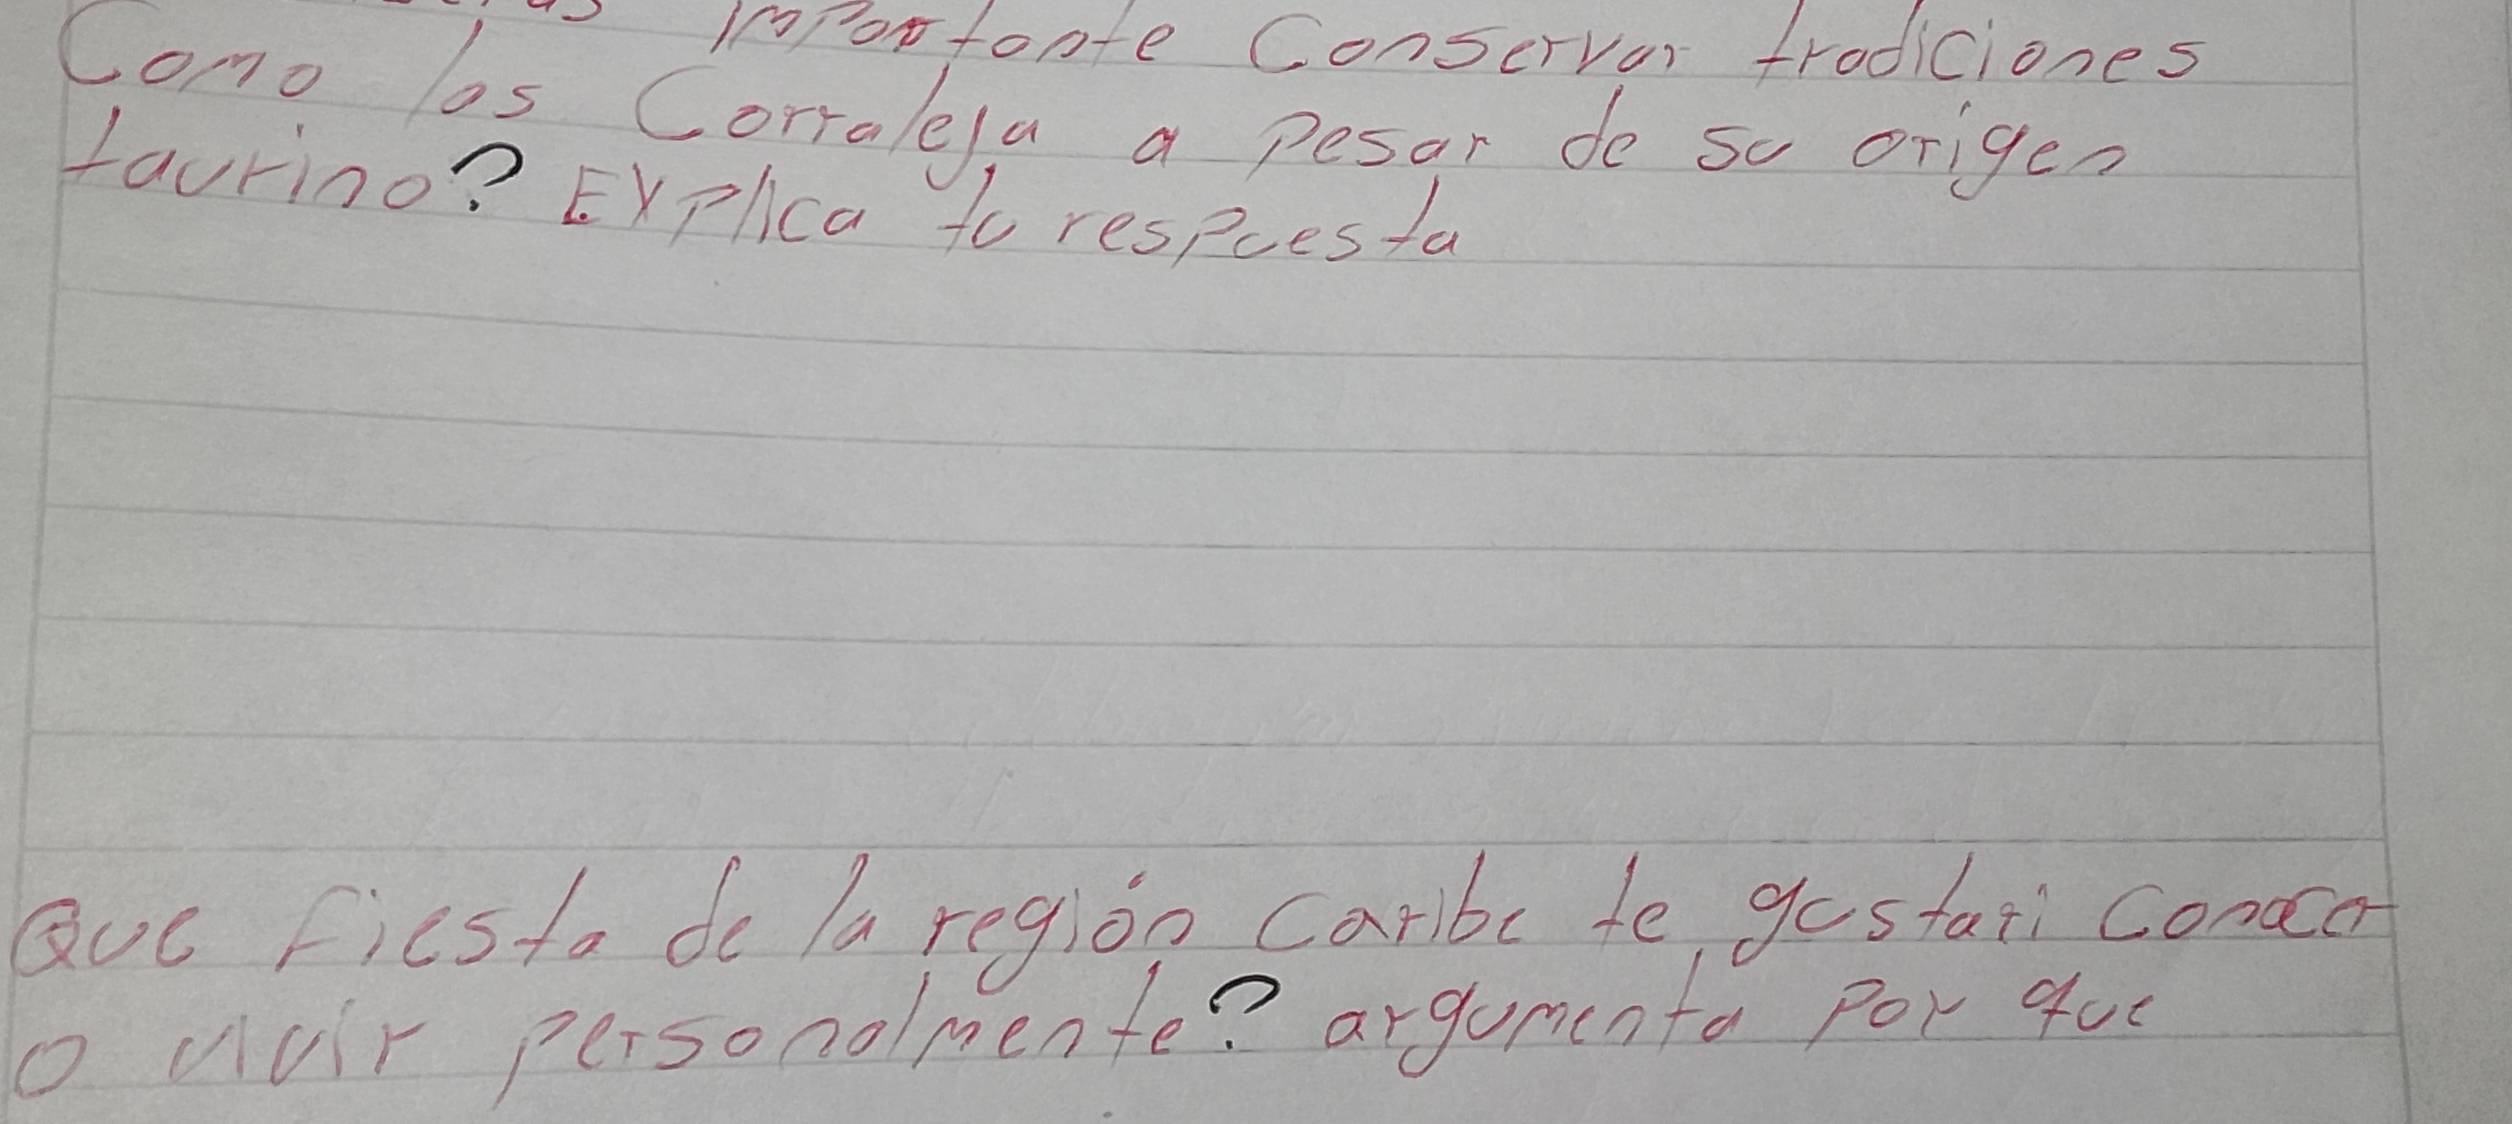 importante Conservar tradiciones
Como las Corraleja a pesar de su origen
taurino? Explica tu respuesta
Que fiesta de la región caribe te gustari conocer
o vivir personalmente? argumenta por que